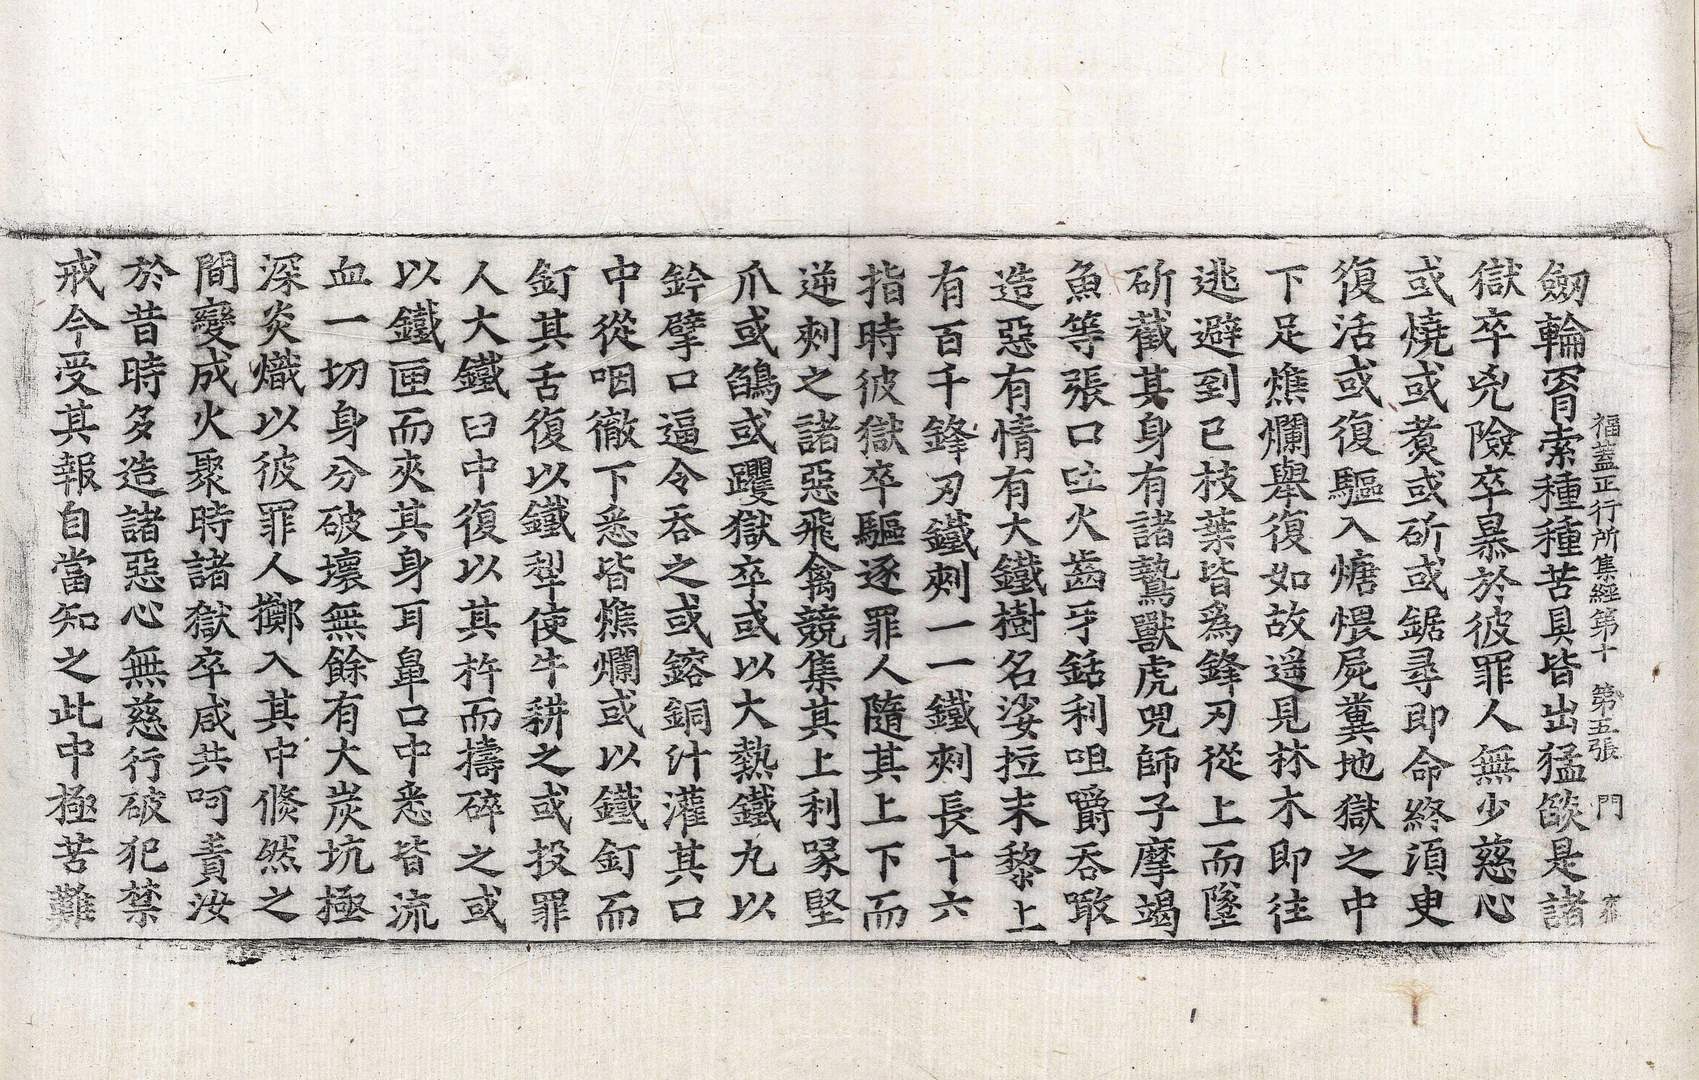 劒輪罥索種種苦具皆出猛燄是諸
福蓋正行所集經第十 第五張 門
獄卒兇險卒暴於彼罪人無少慈心
或燒或煑或斫或鋸尋即命終須臾
復活或復驅入煻煨屍糞地獄之中
下足燋爛舉復如故遥見林木即往
逃避到已枝葉皆爲鋒刃從上而墜
斫截其身有諸鷙獸虎兕師子摩竭
魚等張口吐火齒牙銛利咀嚼吞噉
造惡有情有大鐵樹名娑拉末黎上
有百千鋒刃鐵刺一一鐵刺長十六
指時彼獄卒驅逐罪人隨其上下而
逆刺之諸惡飛禽競集其上利㖨堅
爪或鵮或躩獄卒或以大熱鐵丸以
鉗擘口逼令吞之或鎔銅汁灌其口
中從咽徹下悉皆燋爛或以鐵釘而
釘其舌復以鐵犁使牛耕之或投罪
人大鐵臼中復以其杵而擣碎之或
以鐵匣而夾其身耳鼻口中悉皆流
血一切身分破壞無餘有大炭坑極
深炎熾以彼罪人擲入其中倐然之
間變成火聚時諸獄卒咸共呵責汝
於昔時多造諸惡心無慈行破犯禁
戒今受其報自當知之此中極苦難